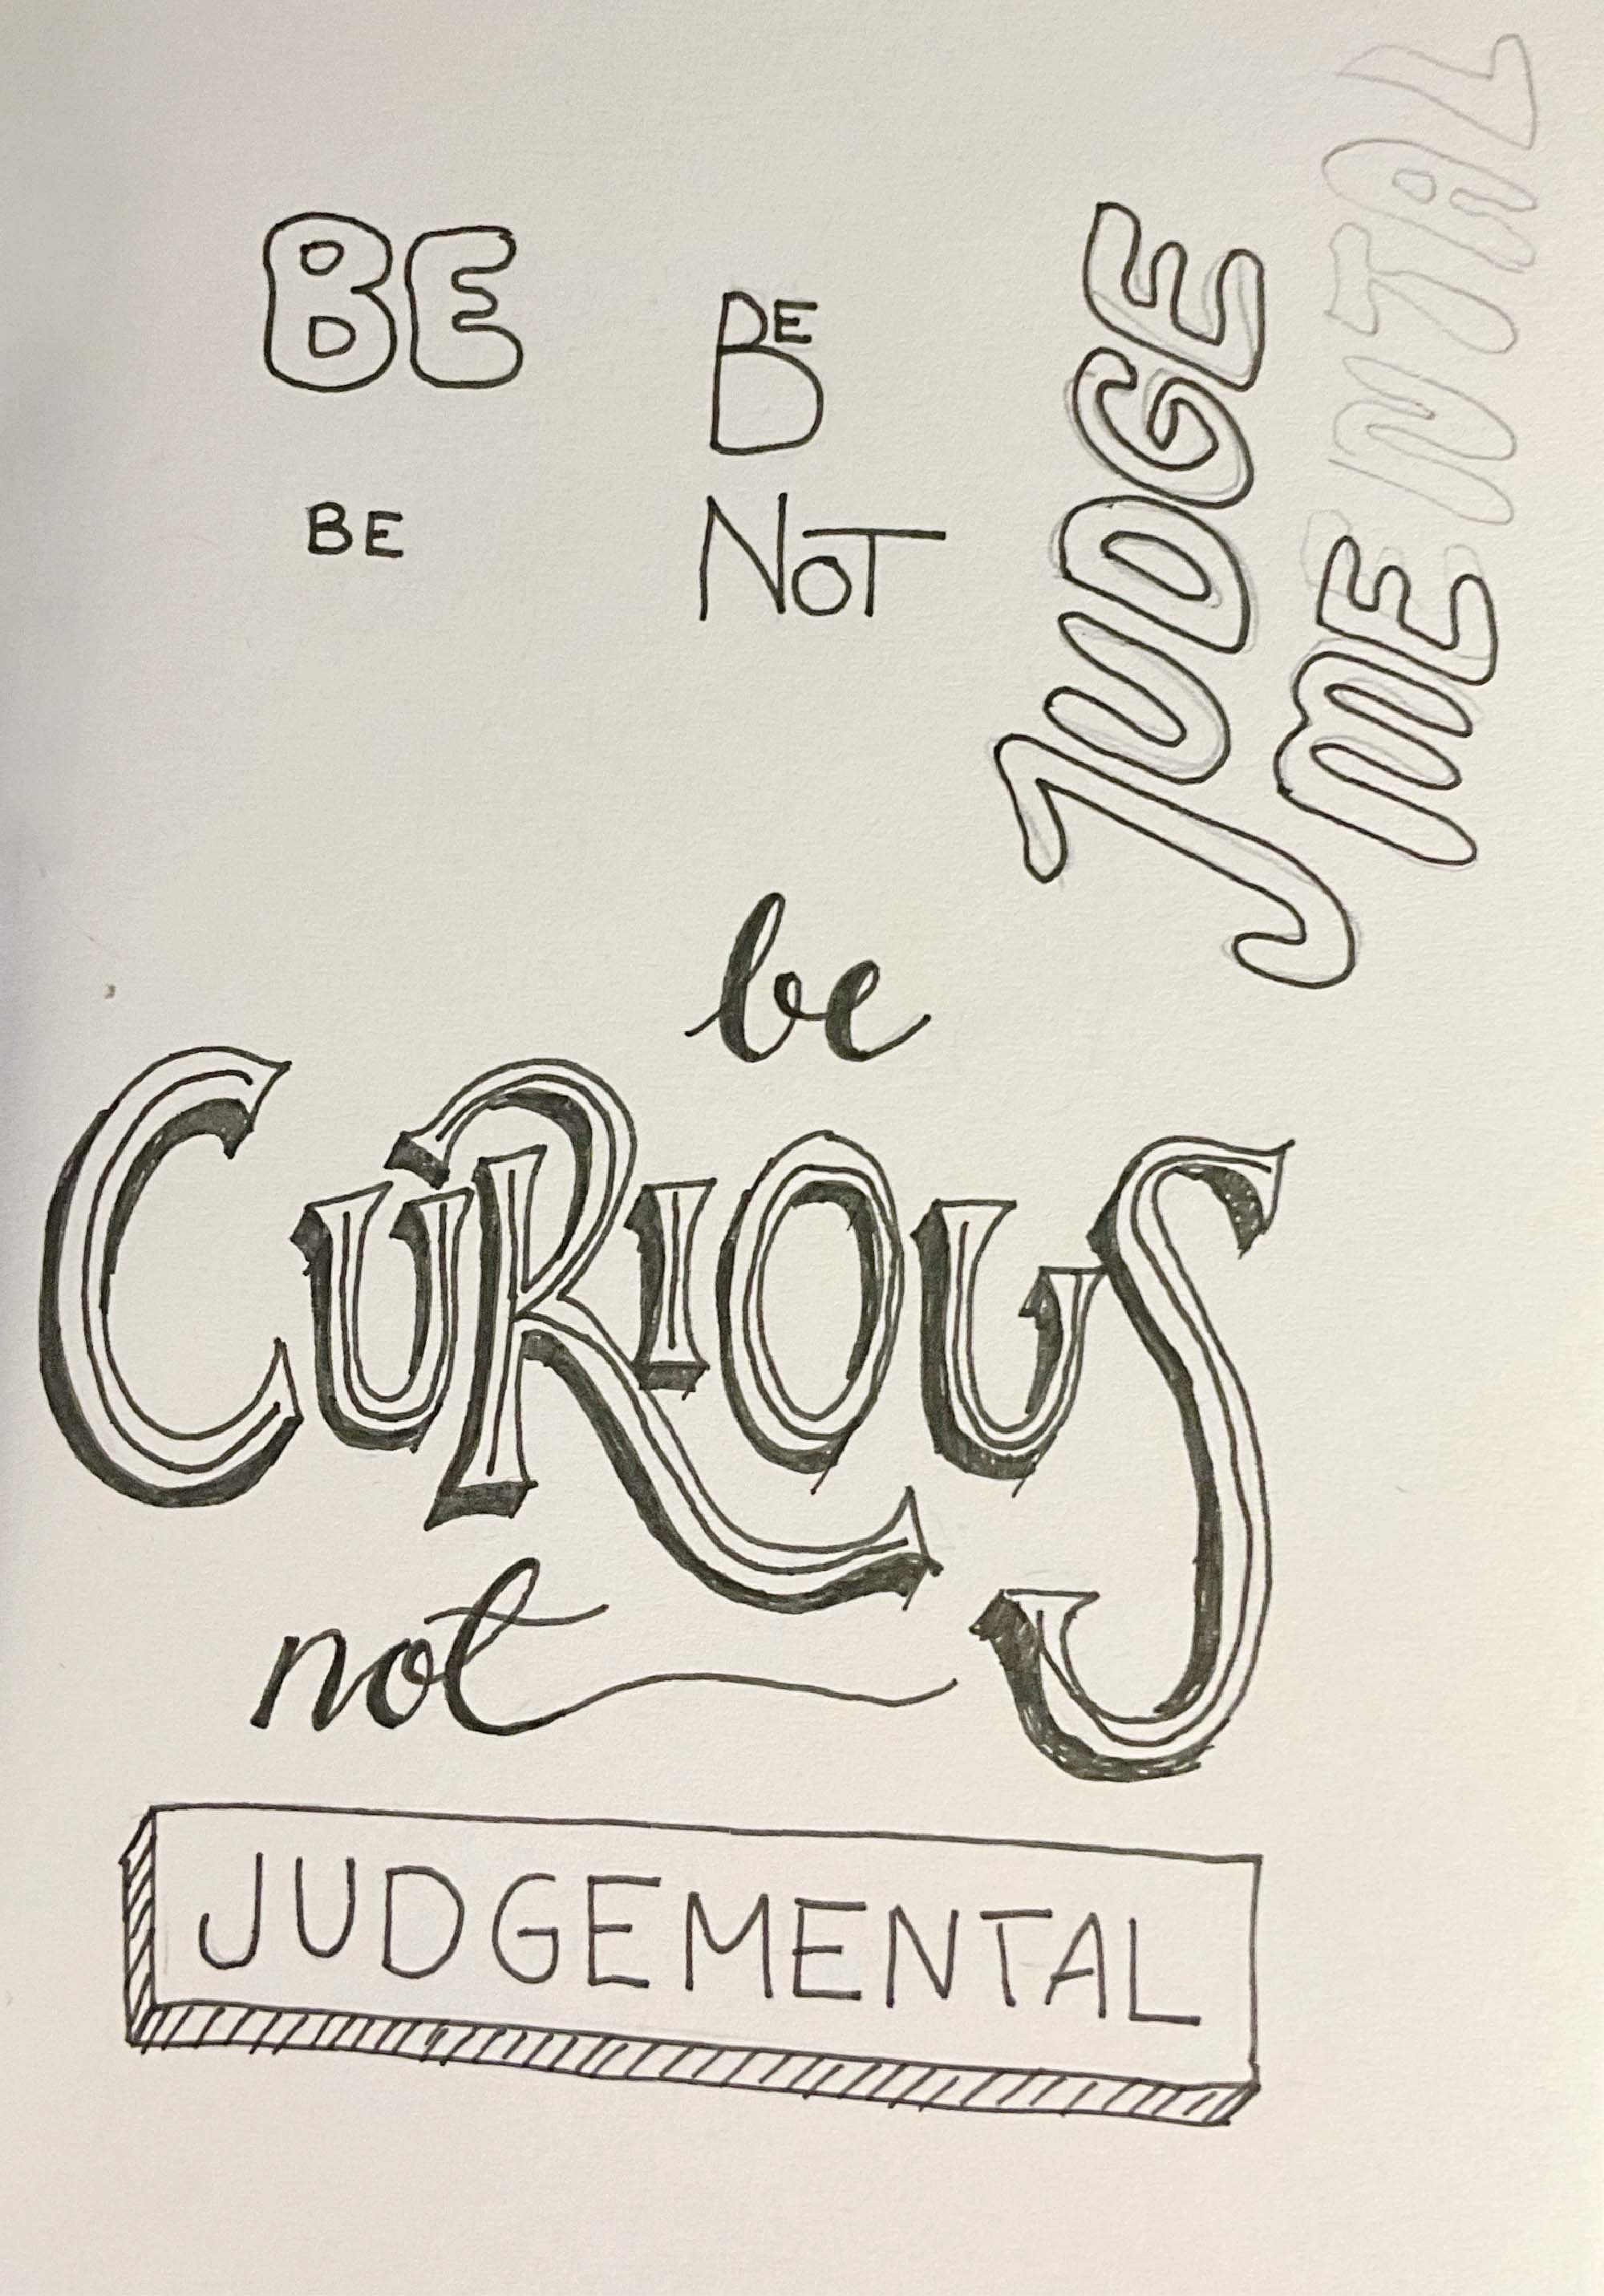 BE
BE
BE
NOT
JUDGE
MENTAL
be
CURIOUS
not
JUDGEMENTAL